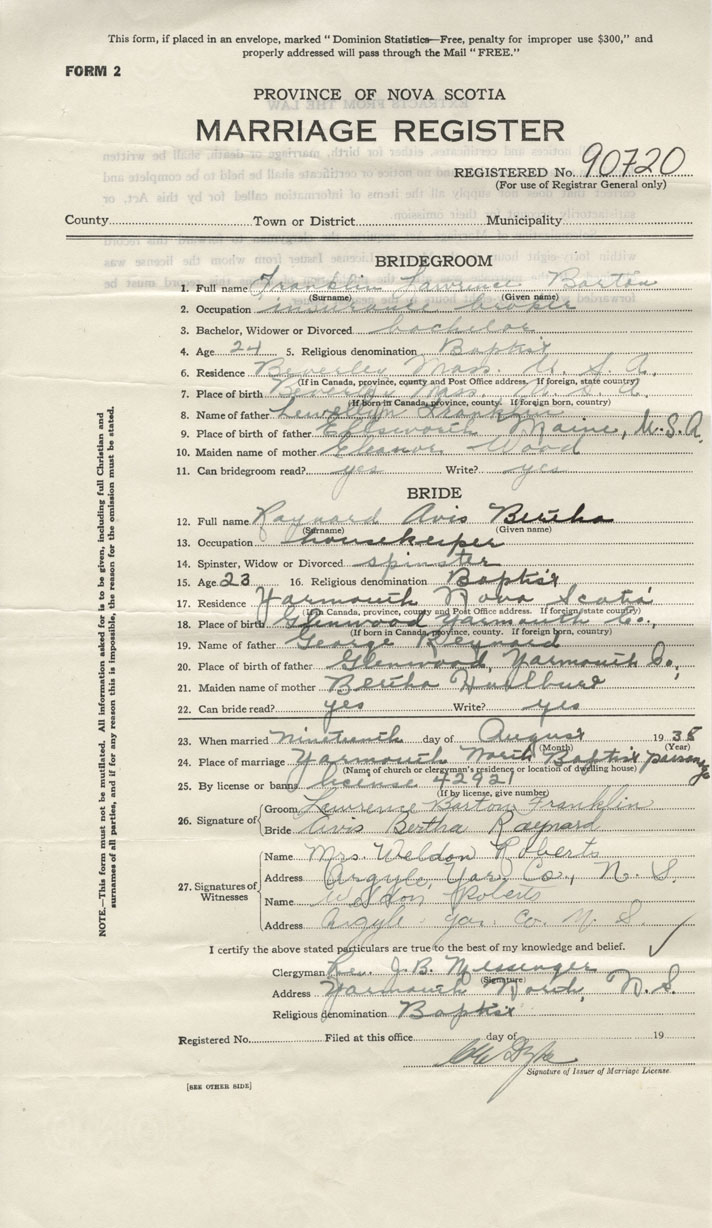 This form, if placed in an envelope, marked "Dominion Statistics—Free, penalty for improper use $300," and
properly addressed will pass through the Mail "FREE."
FORM 2
PROVINCE OF NOVA SCOTIA
MARRIAGE REGISTER
REGISTERED No. 90720
(For use of Registrar General only)
County Town or District Municipality
BRIDEGROOM
1. Full name Franklin Lawrence Barton
(Surname) (Given name)
2. Occupation insurance broker
3. Bachelor, Widower or Divorced bachelor
4. Age 24 5. Religious denomination Baptist
6. Residence Beverley Mass. U. S. A.
(If in Canada, province, county and Post Office address. If foreign, state country)
7. Place of birth Beverley Mass. U. S. A.
(If born in Canada, province, county. If foreign born, country)
8. Name of father Lewellyn Franklin
9. Place of birth of father Ellsworth Maine, U.S.A.
10. Maiden name of mother Eleanor Wood
11. Can bridegroom read? yes Write? yes
BRIDE
12. Full name Raynard Avis Bertha
(Surname) (Given name)
13. Occupation housekeeper
14. Spinster, Widow or Divorced spinster
15. Age 23 16. Religious denomination Baptist
17. Residence Yarmouth Nova Scotia
(If in Canada, province, county and Post Office address. If foreign, state country)
18. Place of birth Glenwood Yarmouth Co.,
(If born in Canada, province, county. If foreign born, country)
19. Name of father George Reynard
20. Place of birth of father Glenwood, Yarmouth Co,
21. Maiden name of mother Bertha
22. Can bride read? yes Write? yes
23. When married nineteenth day of August 1938
(Month) (Year)
24. Place of marriage Yarmouth North Baptist parsonage
(Name of church or clergyman's residency or location of dwelling house)
25. By license or banns license 42921
(If by license, give number)
26. Signature of Groom Lawrence Barton Franklin
Bride Avis Bertha Raynard
27. Signatures of Witnesses
Name Mrs. Weldon Roberts
Address Argyle, Yar. Co., N. S.
Name Weldon Roberts
Address Argyle Yar. Co. N. S.
I certify the above stated particulars are true to the best of my knowledge and belief.
Clergyman Rev. J. B. Messenger
(Signature)
Address Yarmouth North, N. S.
Religious denomination Baptist
Registered No. Filed at this office day of 19
Signature of Issuer of Marriage License
[SEE OTHER SIDE]
NOTE.—This form must not be mutilated. All information asked for is to be given, including full Christian and
surnames of all parties, and if for any reason this is impossible, the reason for the omission must be stated.